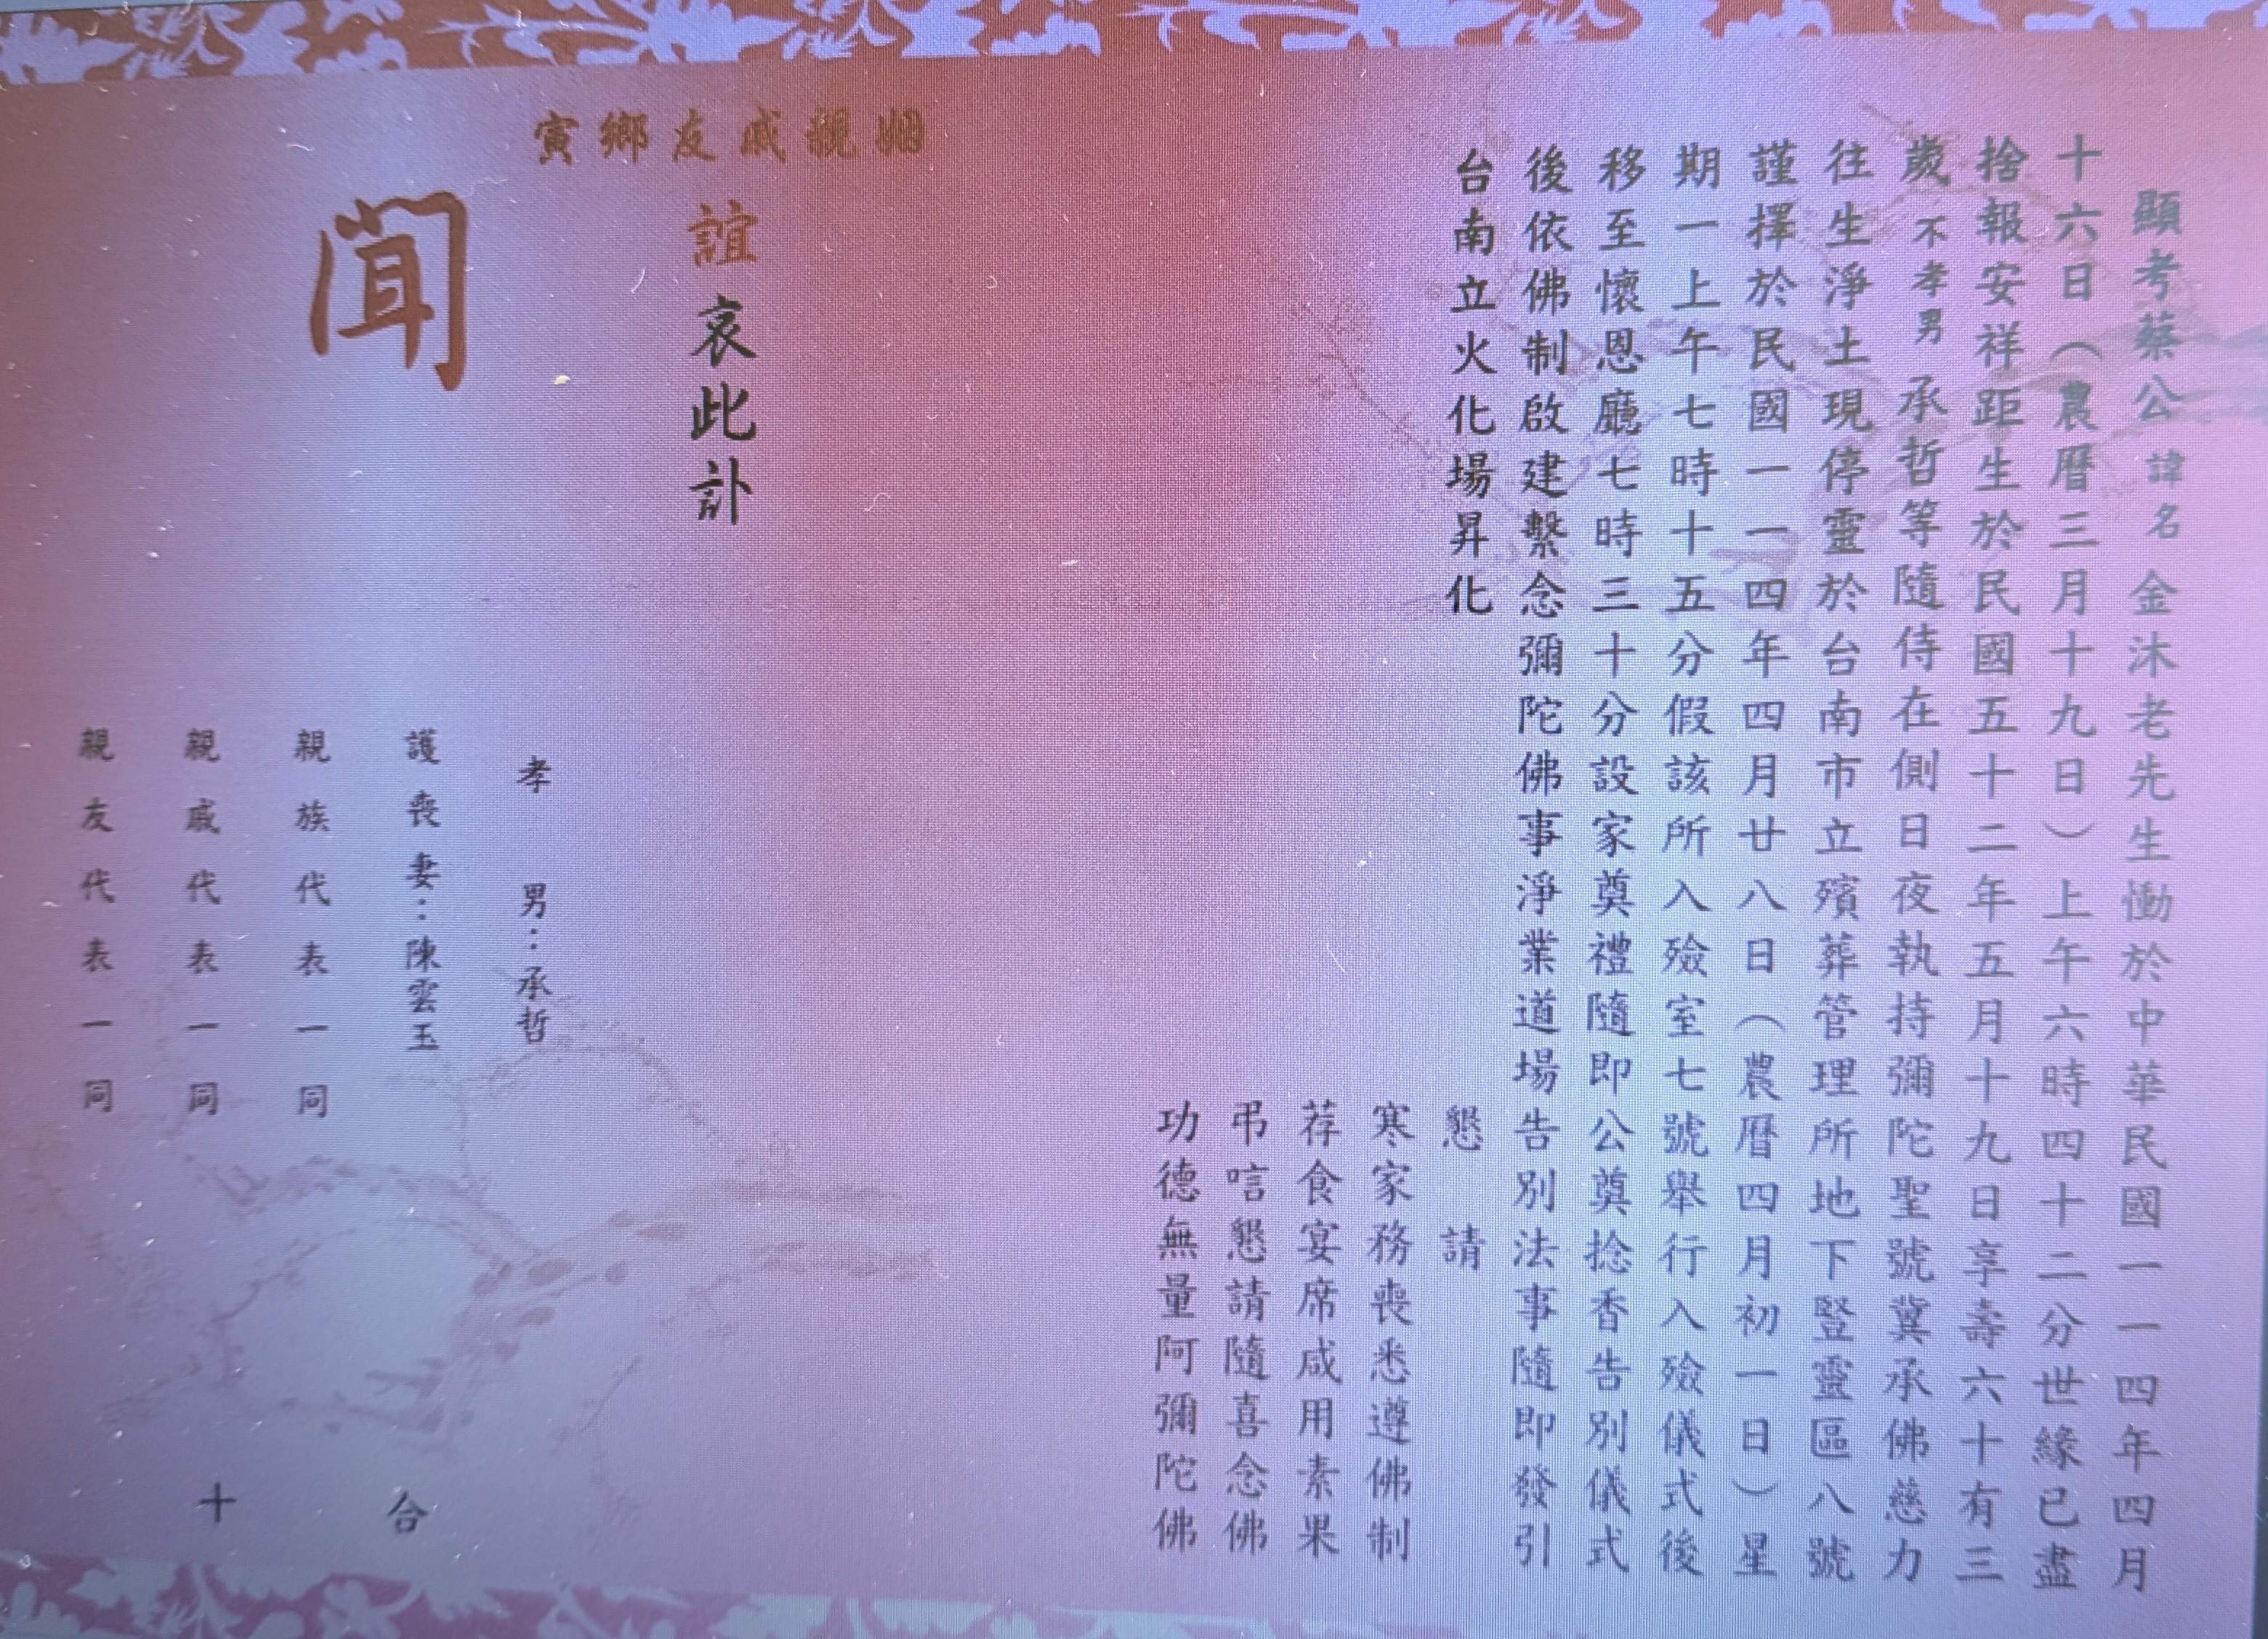 顯考蔡公諱名金沐老先生慟於中華民國一一四年四月
十六日（農曆三月十九日）上午六時四十二分世緣已盡
捨報安祥距生於民國五十二年五月十九日享壽六十有三
歲不孝男承哲等隨侍在側日夜執持彌陀聖號冀承佛慈力
往生淨土現停靈於台南市立殯葬管理所地下豎靈區八號
謹擇於民國一一四年四月廿八日（農曆四月初一日）星
期一上午七時十五分假該所入殮室七號舉行入殮儀式後
移至懷恩廳七時三十分設家奠禮隨即公奠捻香告別儀式
後依佛制啟建繫念彌陀佛事淨業道場告別法事隨即發引
台南立火化場昇化
懇請
寒家務喪悉遵佛制
荐食宴席咸用素果
弔唁懇請隨喜念佛
功德無量阿彌陀佛
姻親戚友鄉寅
誼哀此訃
聞
孝男：承哲
護喪妻：陳雲玉
親族代表一同
親戚代表一同
親友代表一同
合十